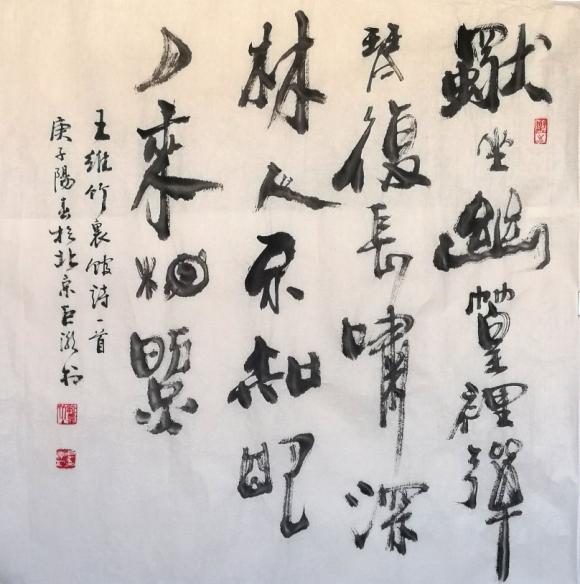 獨坐幽篁裡彈
琴復長嘯深
林人不知明
月來相照
王維竹裏館詩一首
庚子陽春於北京巨